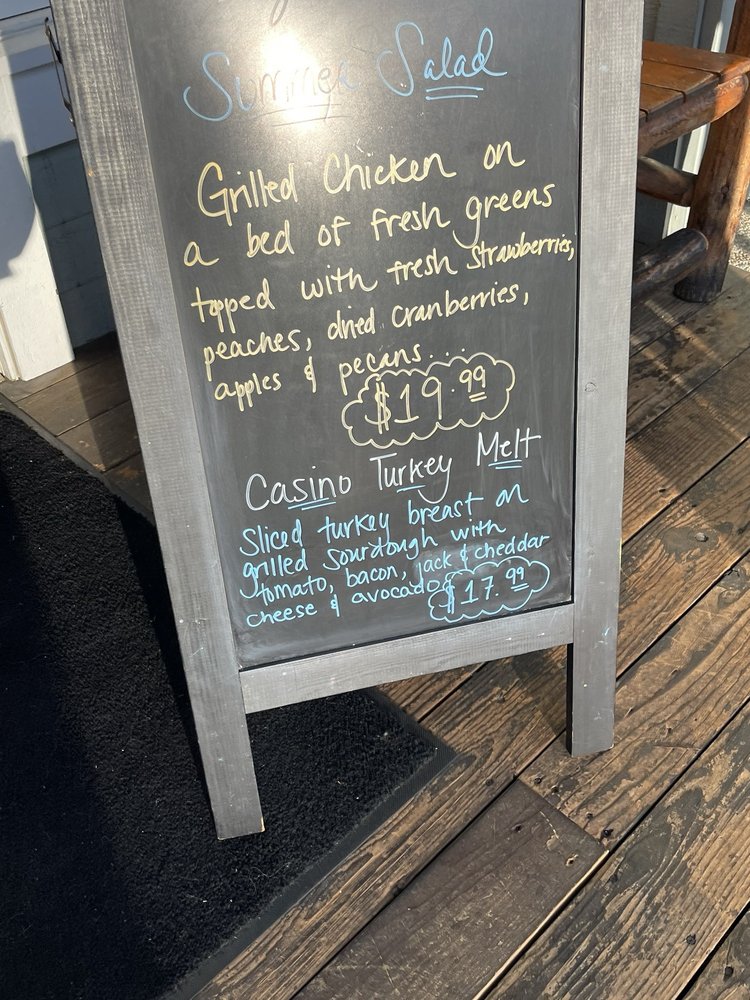 Summer Salad
Grilled Chicken on
a bed of fresh greens
topped with fresh strawberries,
peaches, dried cranberries,
apples & pecans...
$19.99
Casino Turkey Melt
Sliced turkey breast on
grilled Sourdough with
tomato, bacon, jack & cheddar
cheese & avocado
$17.99